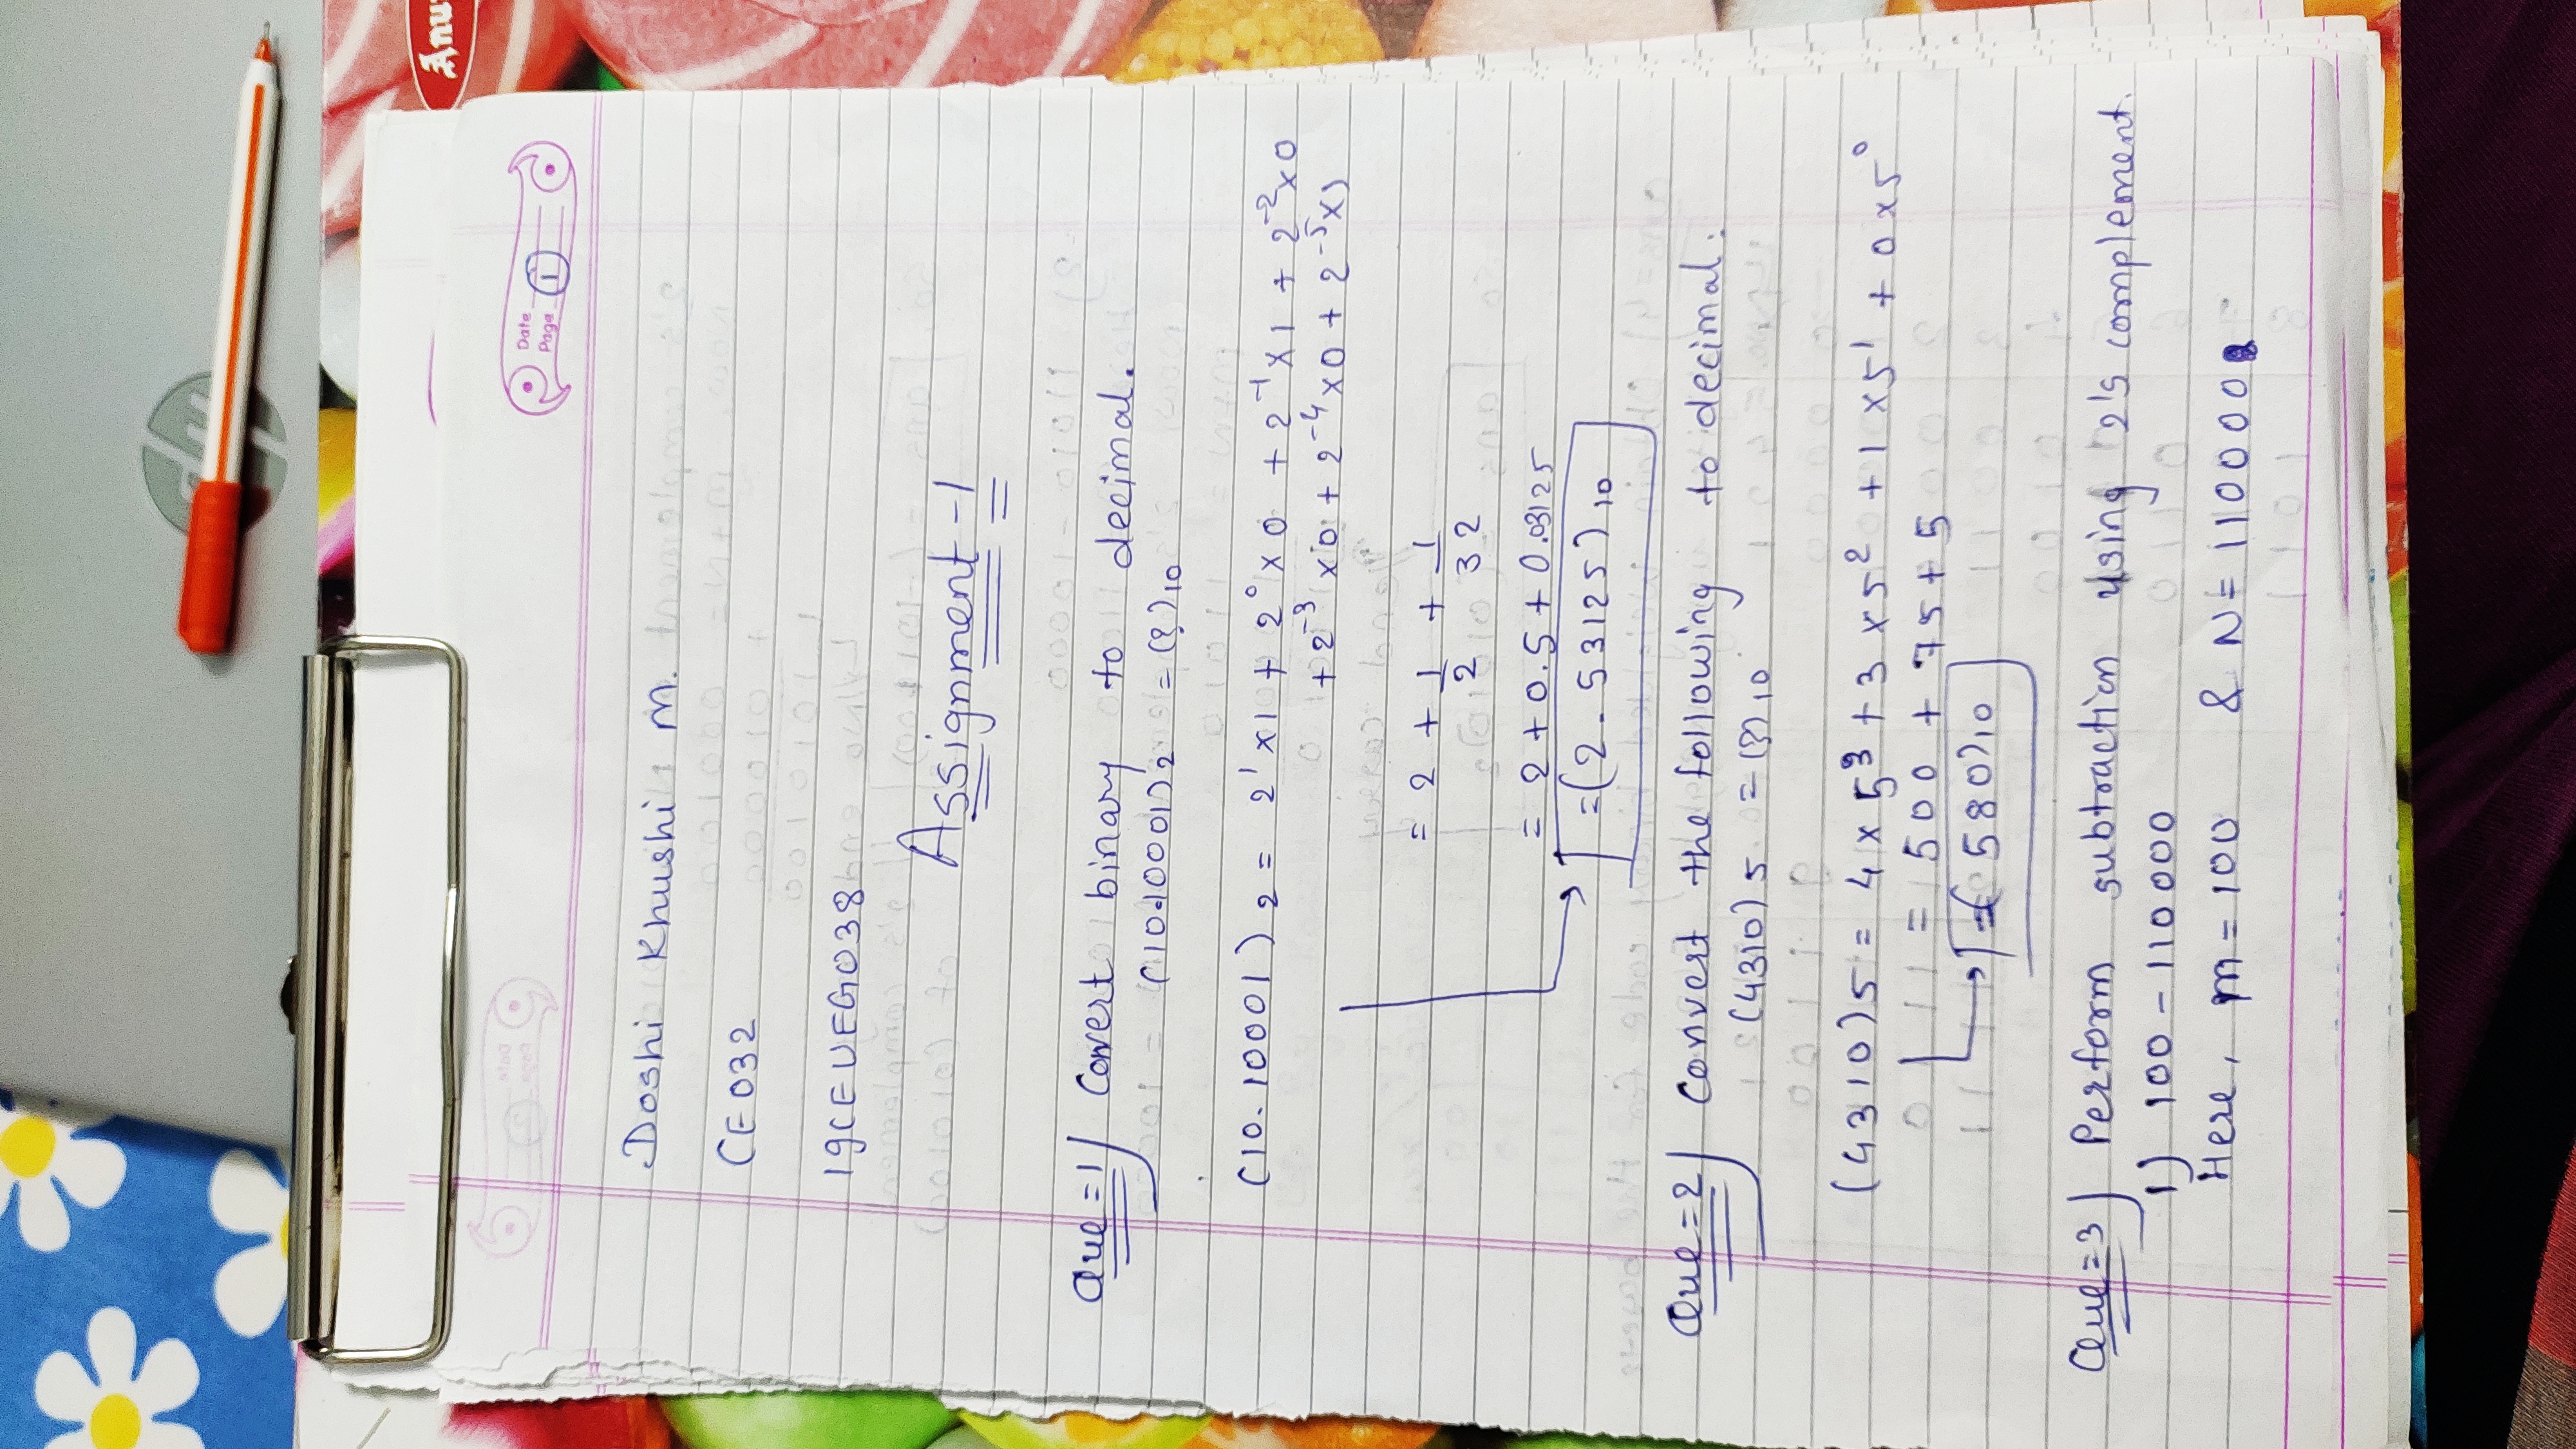 Date
Page 1
Doshi Khushi M.
CE032
19CEUEG038
Assignment-1
Que=1) Convert binary to decimal.
(10.10001)2 = (?)10
(10.10001)2 = 2¹x1 + 2⁰x0 + 2⁻¹x1 + 2⁻²x0
+ 2⁻³x0 + 2⁻⁴x0 + 2⁻⁵x1
= 2 + 1/2 + 1/32
= 2 + 0.5 + 0.03125
= (2.53125)10
Que=2) Convert the following to decimal.
(4310)5 = (?)10
(4310)5 = 4x5³ + 3x5² + 1x5¹ + 0x5⁰
= 500 + 75 + 5
= (580)10
Que=3) Perform subtraction using 2's complement.
1) 100 - 110000
Here, M = 100 & N = 110000
hp